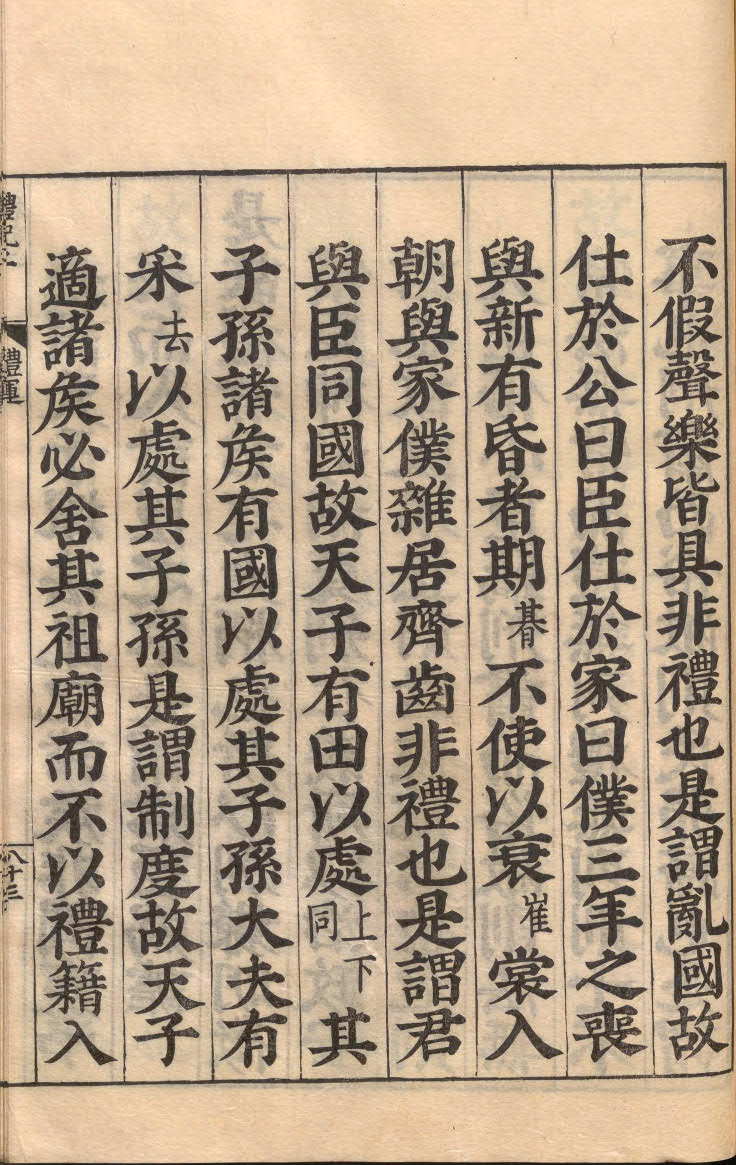 不假聲樂皆具非禮也是謂亂國故
仕於公曰臣仕於家曰僕三年之喪
與新有昏者期朞不使以衰崔裳入
朝與家僕雜居齊齒非禮也是謂君
與臣同國故天子有田以處上下同其
子孫諸矦有國以處其子孫大夫有
采去以處其子孫是謂制度故天子
適諸矦必舍其祖廟而不以禮籍入
禮運
八十三